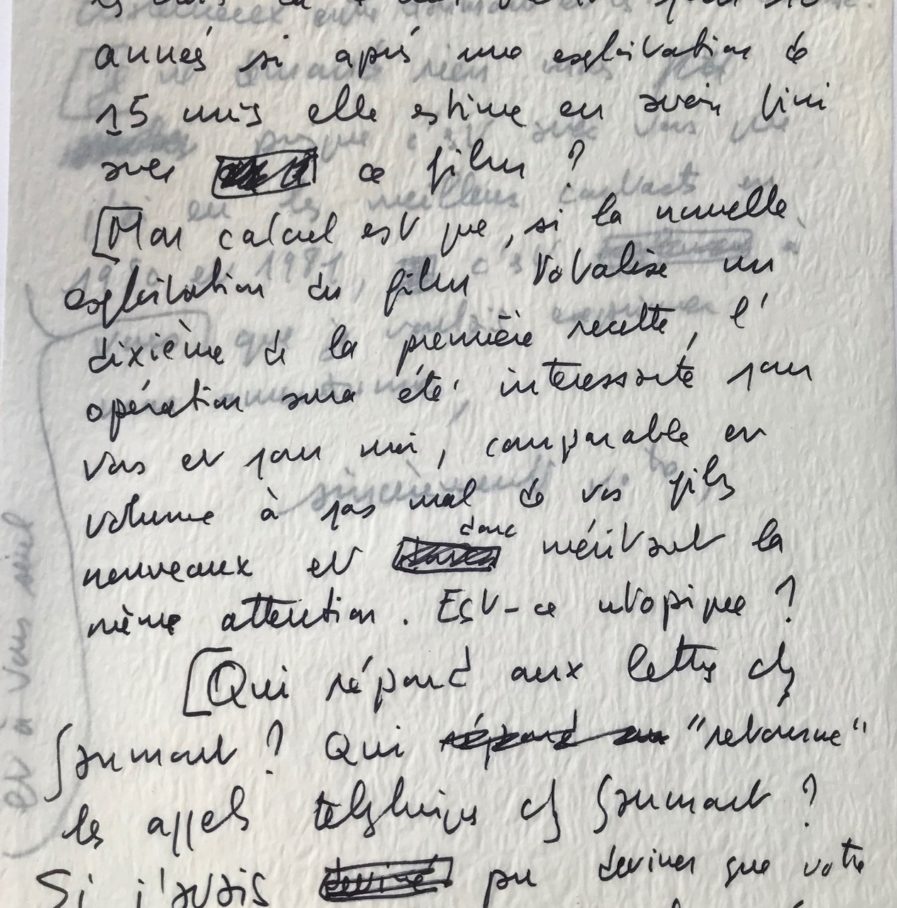 années si après une exploitation de
15 mois elle estime en avoir fini
avec ce film ?
[Mon calcul est que, si la nouvelle
exploitation du film totalise un
dixième de la première recette, l'
opération aura été intéressante pour
vous et pour moi, comparable en
volume à pas mal de vos films
nouveaux et donc méritant la
même attention. Est-ce utopique ?
[Qui répond aux lettres chez
Gaumont ? Qui "retourne"
les appels téléphoniques chez Gaumont ?
Si j'avais deviné pu deviner que votre
et à vous seul
sincèrement